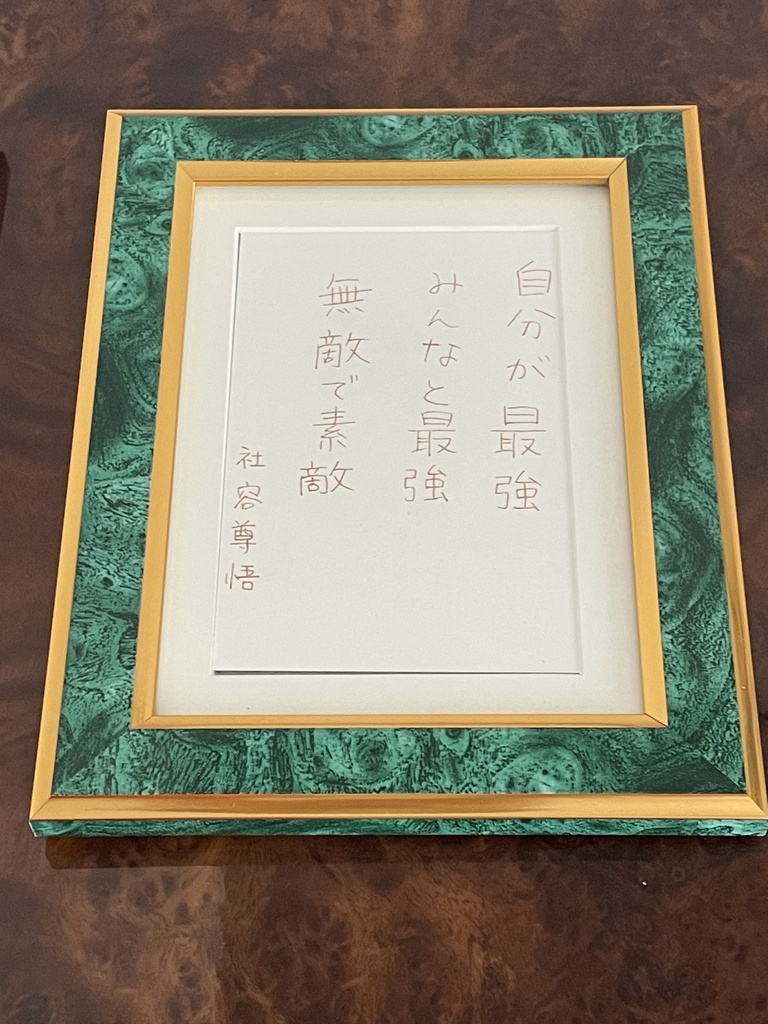 自分が最強
みんなと最強
無敵で素敵
社容尊悟